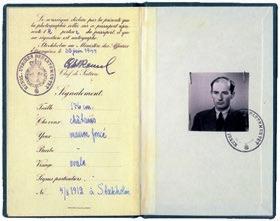 Le soussigné déclare par la présente que
la photographie collée sur ce passeport repré-
sente le porteur du passeport et que
sa signature est autographe.
Stockholm au Ministère des Affaires
Étrangères le 30 juin 1944
Chef de Section
Signalement
Taille 176 cm.
Cheveux châtains
Yeux marron foncé
Barbe -
Visage ovale
Signes particuliers -
Né 4/8 1912 à Stockholm